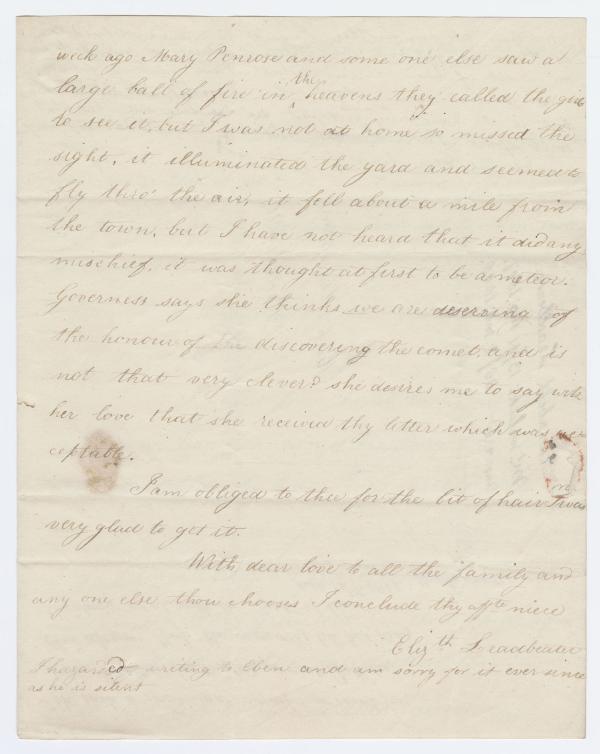 week ago Mary Penrose and some one else saw a
large ball of fire in the heavens they called the girls
to see it, but I was not at home so missed the
sight, it illuminated the yard and seemed to
fly thro' the air, it fell about a mile from
the town, but I have not heard that it did any
mischief, it was thought at first to be a meteor.
Governess says she thinks we are deserving of
the honour of discovering the comet, and is
not that very clever? she desires me to say with
her love that she received thy letter which was very
ceptable.
I am obliged to thee for the bit of hair I was
very glad to get it.
With dear love to all the family and
any one else thou chooses I conclude thy affte niece
Elizth Leadbeater
I hazarded writing to Eben and am sorry for it ever since
as he is silent